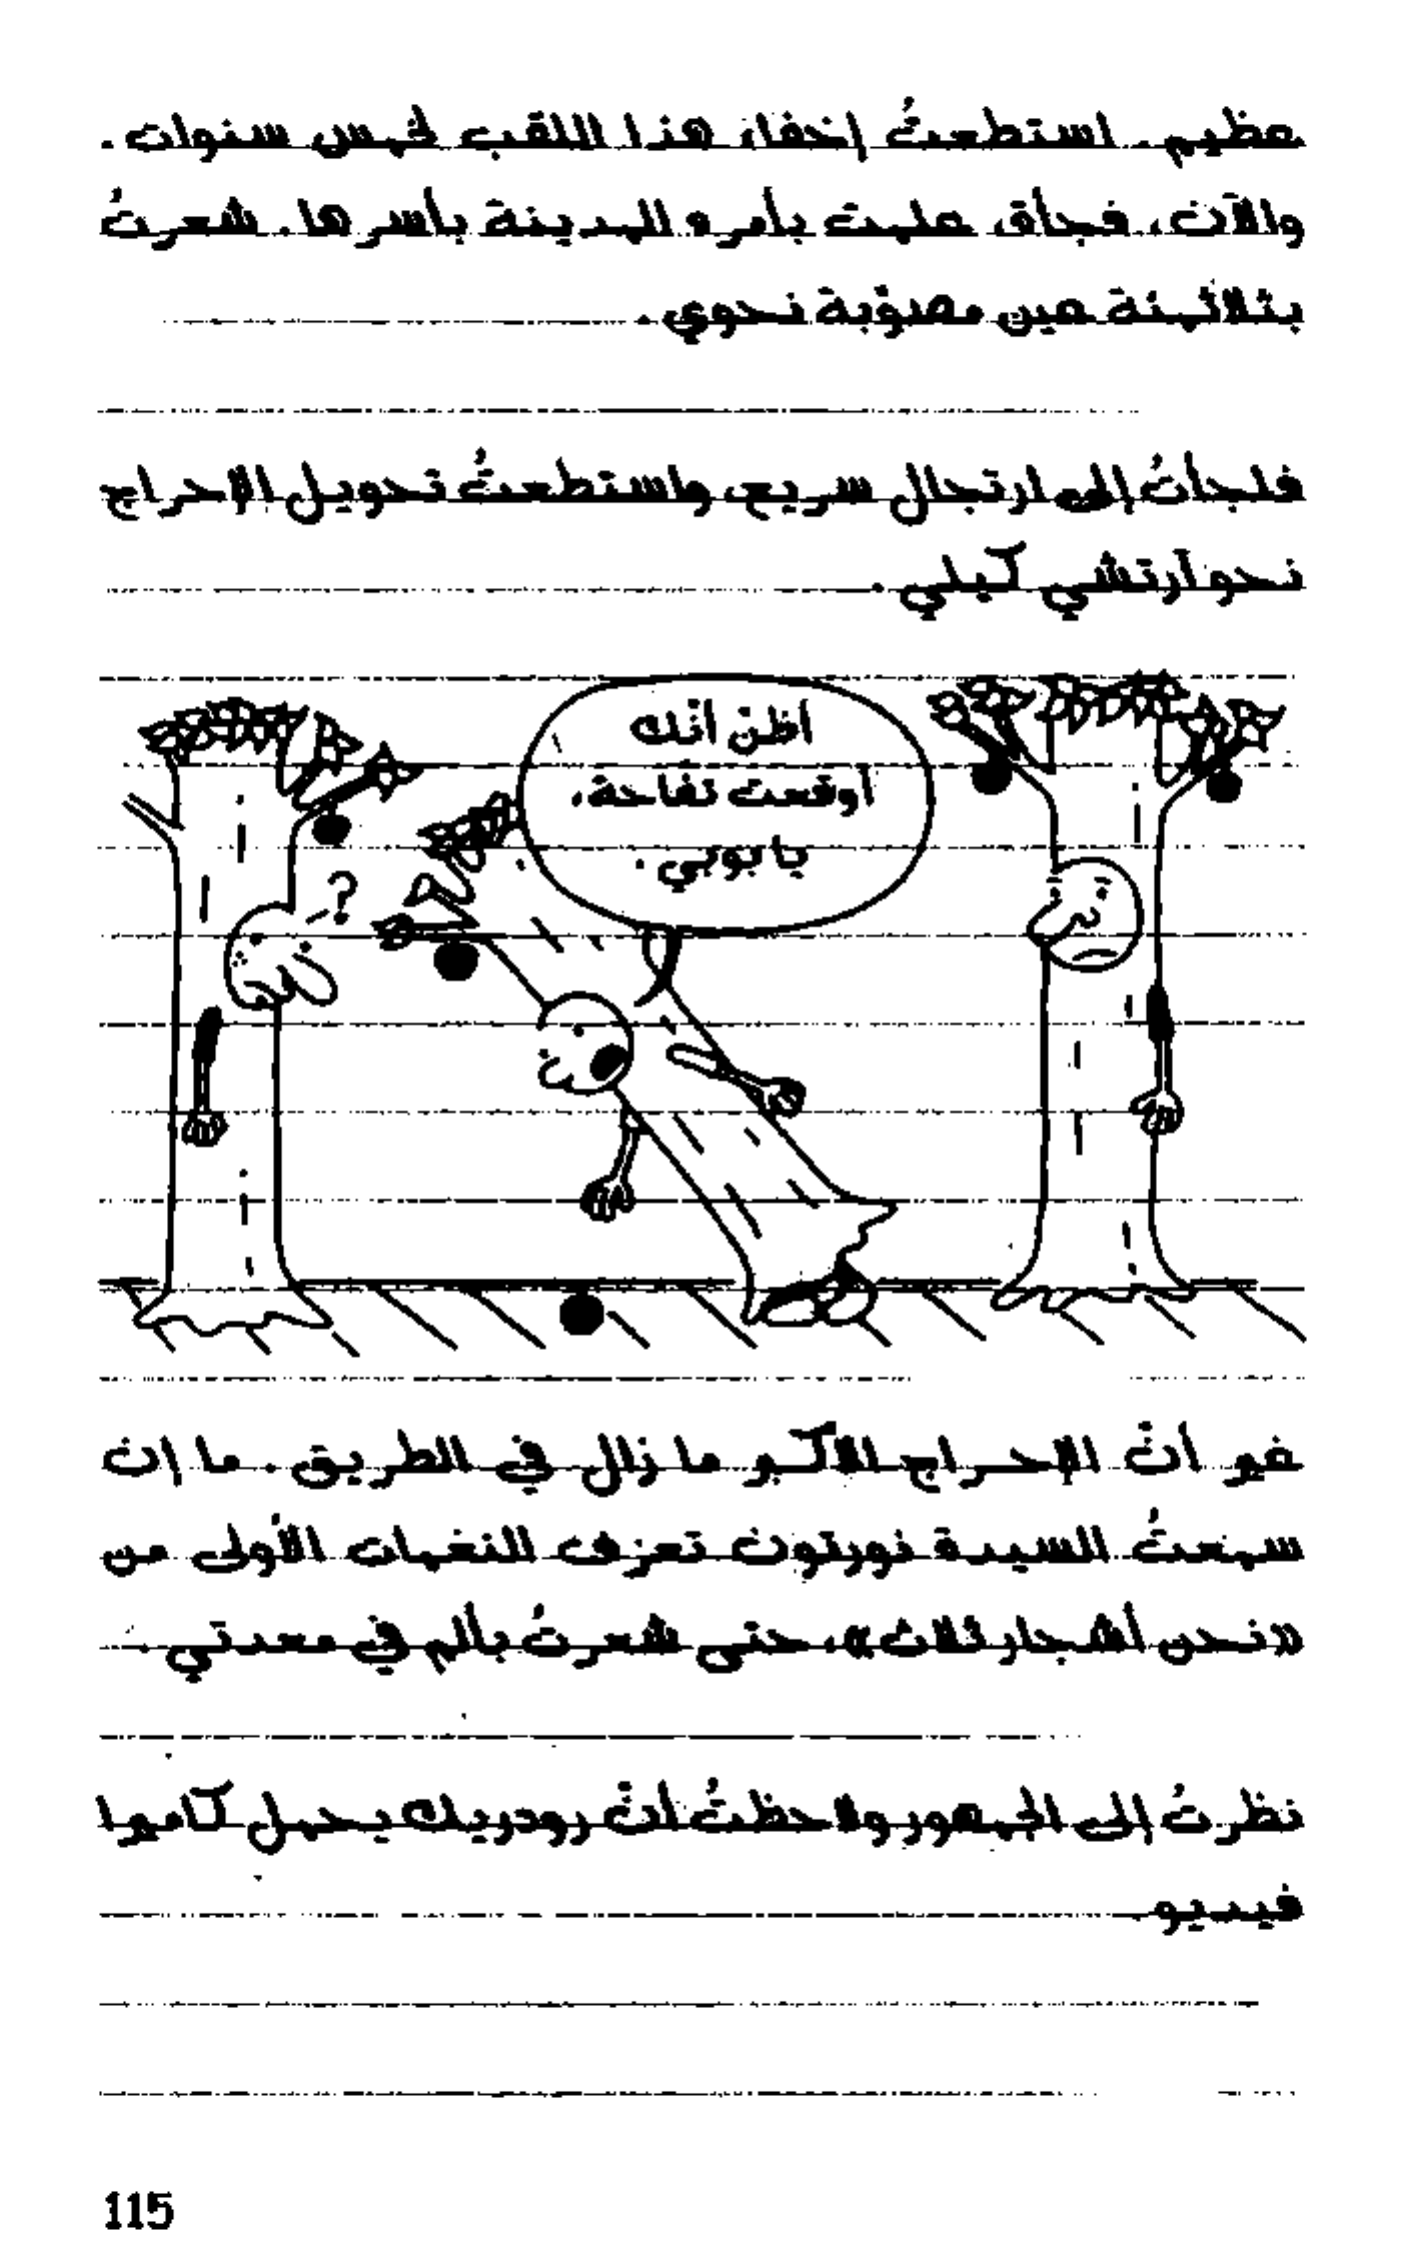 عظيم. استطعتُ إخفاء هذا اللقب لخمس سنوات.
والآن، فجأة، علمت بأمره المدينة بأسرها. شعرتُ
بثلاثمئة عين مصوّبة نحوي.
فلجأتُ إلى ارتجال سريع، واستطعتُ تحويل الإحراج
نحو آرتشي كيلي.
أظنّ أنّك
أوقعت تفاحة،
يا بوبي.
?
غير أنّ الإحراج الأكبر ما زال في الطريق. ما إن
سمعتُ السيدة نورتون تعزف النغمات الأولى من
«نحن أشجار ثلاث»، حتى شعرتُ بألم في معدتي.
نظرتُ إلى الجمهور ولاحظتُ أنّ رودريك يحمل كاميرا
فيديو.
115